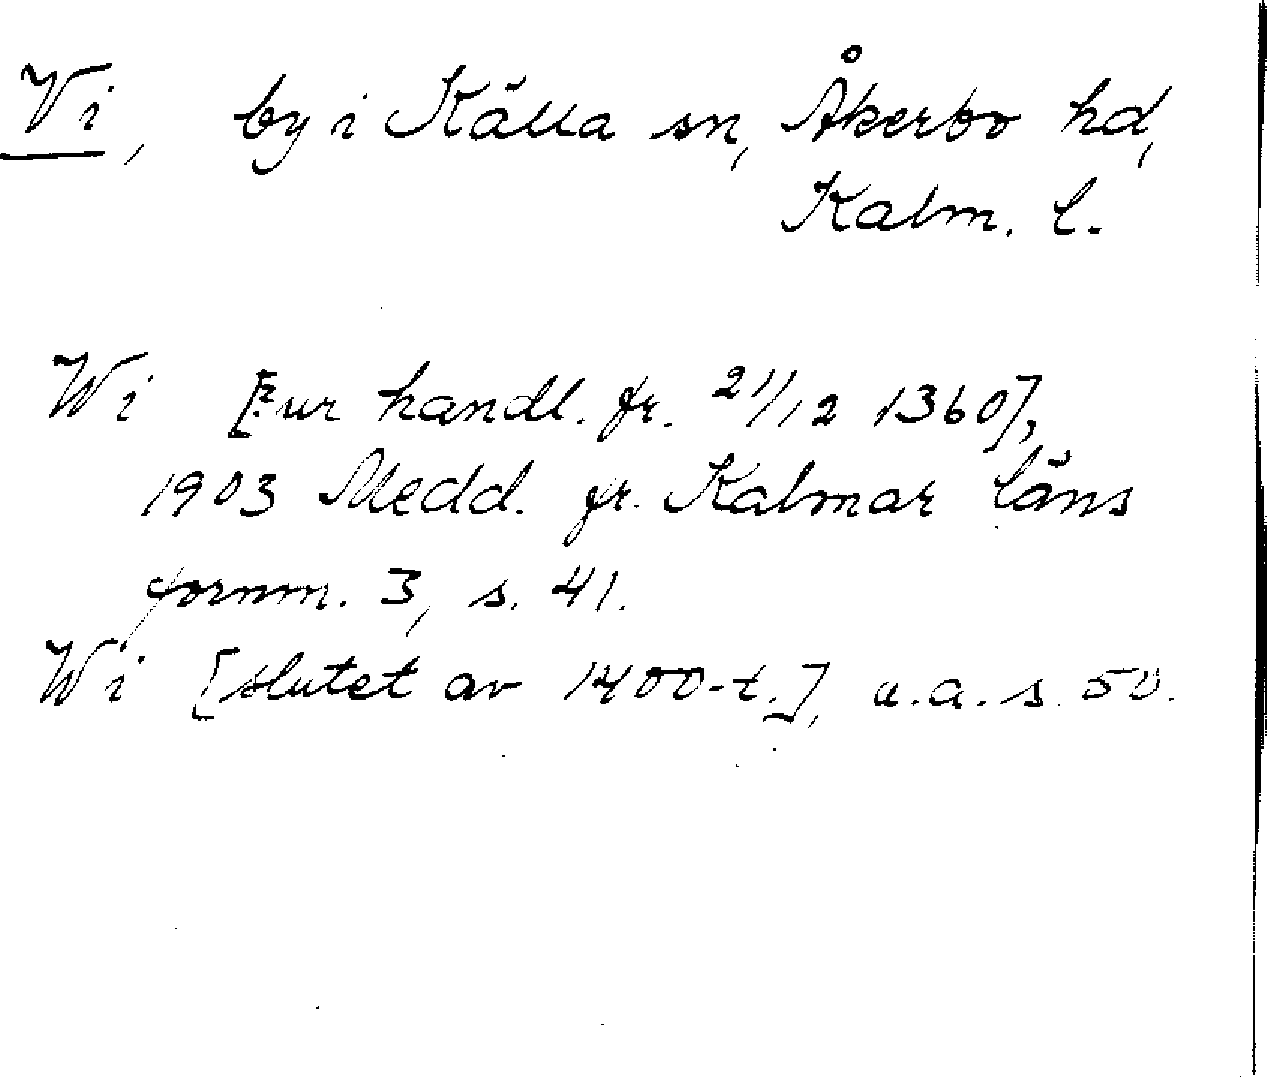 Vi, by i Källa sn, Åkerbo hd,
Kalm. l.
Wi [ur handl. fr. 21/12 1360],
1903 Medd. fr. Kalmar läns
fornm. 3, s. 41.
Wi [slutet av 1400-t.], a.a. s. 50.